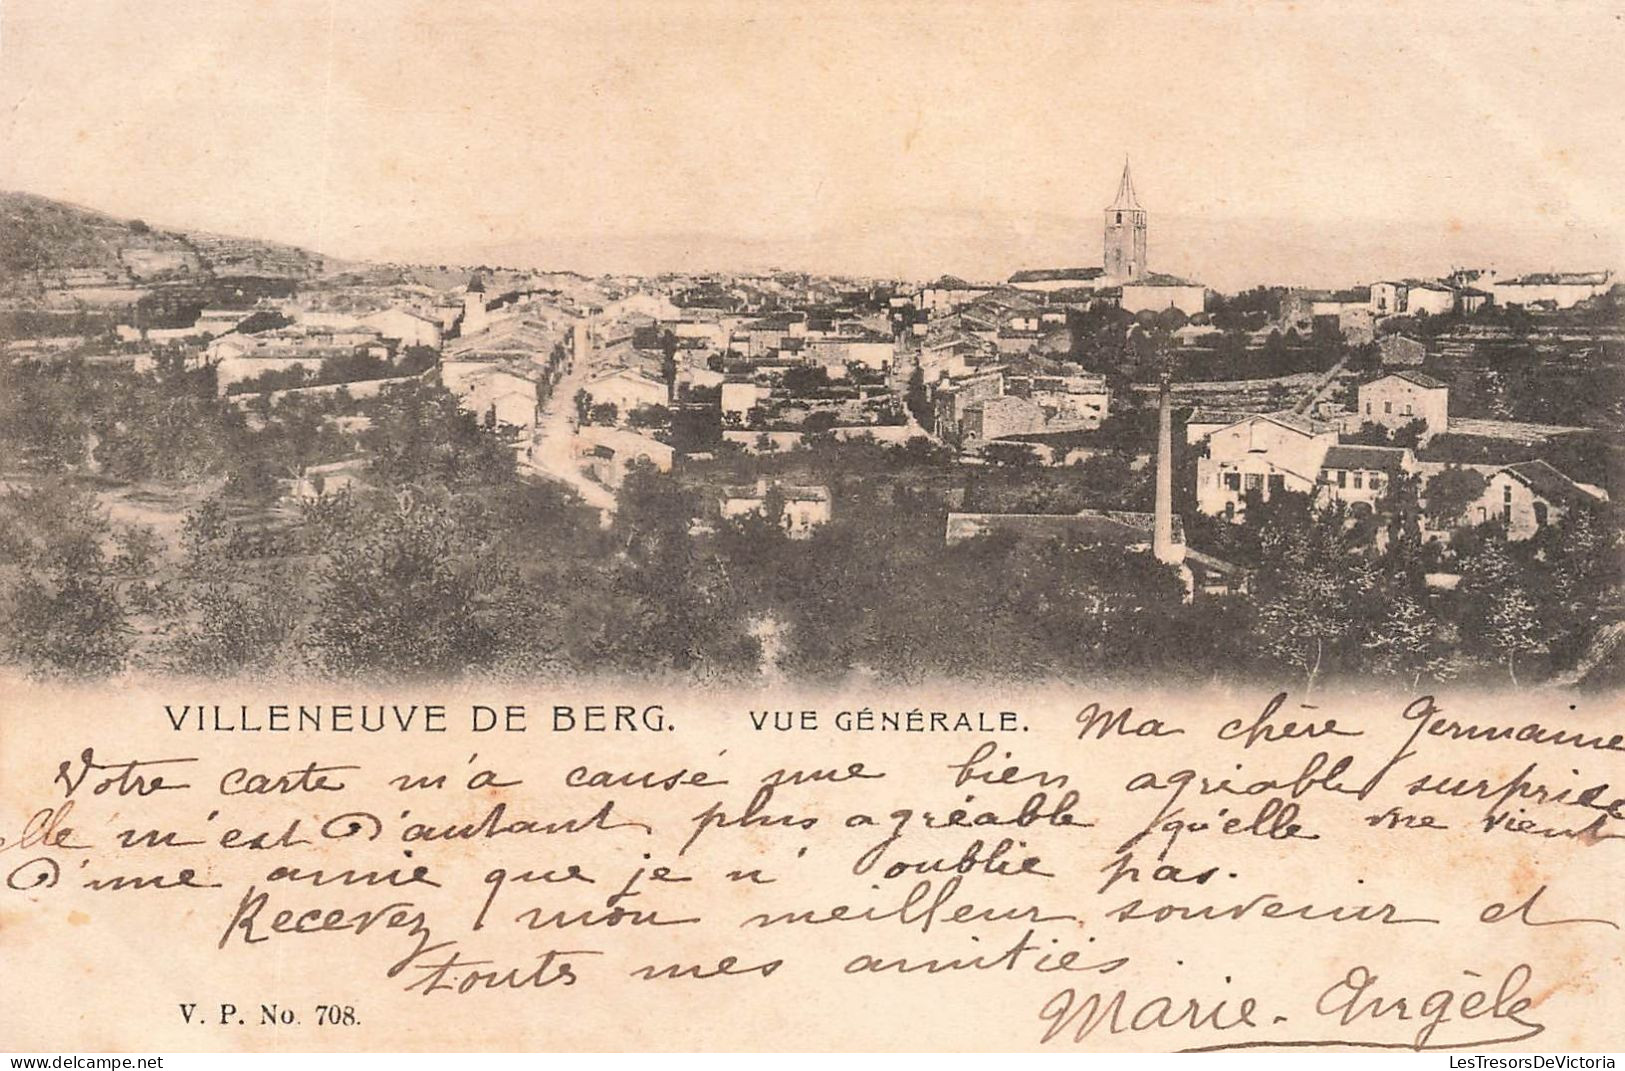 VILLENEUVE DE BERG. VUE GÉNÉRALE. Ma chère Germaine
Votre carte m'a causé une bien agréable surprise
elle m'est d'autant plus agréable qu'elle me vient
d'une amie que je n'oublie pas.
Recevez mon meilleur souvenir et
toute mes amitiés.
Marie-Angèle
V. P. No. 708.
www.delcampe.net
LesTresorsDeVictoria